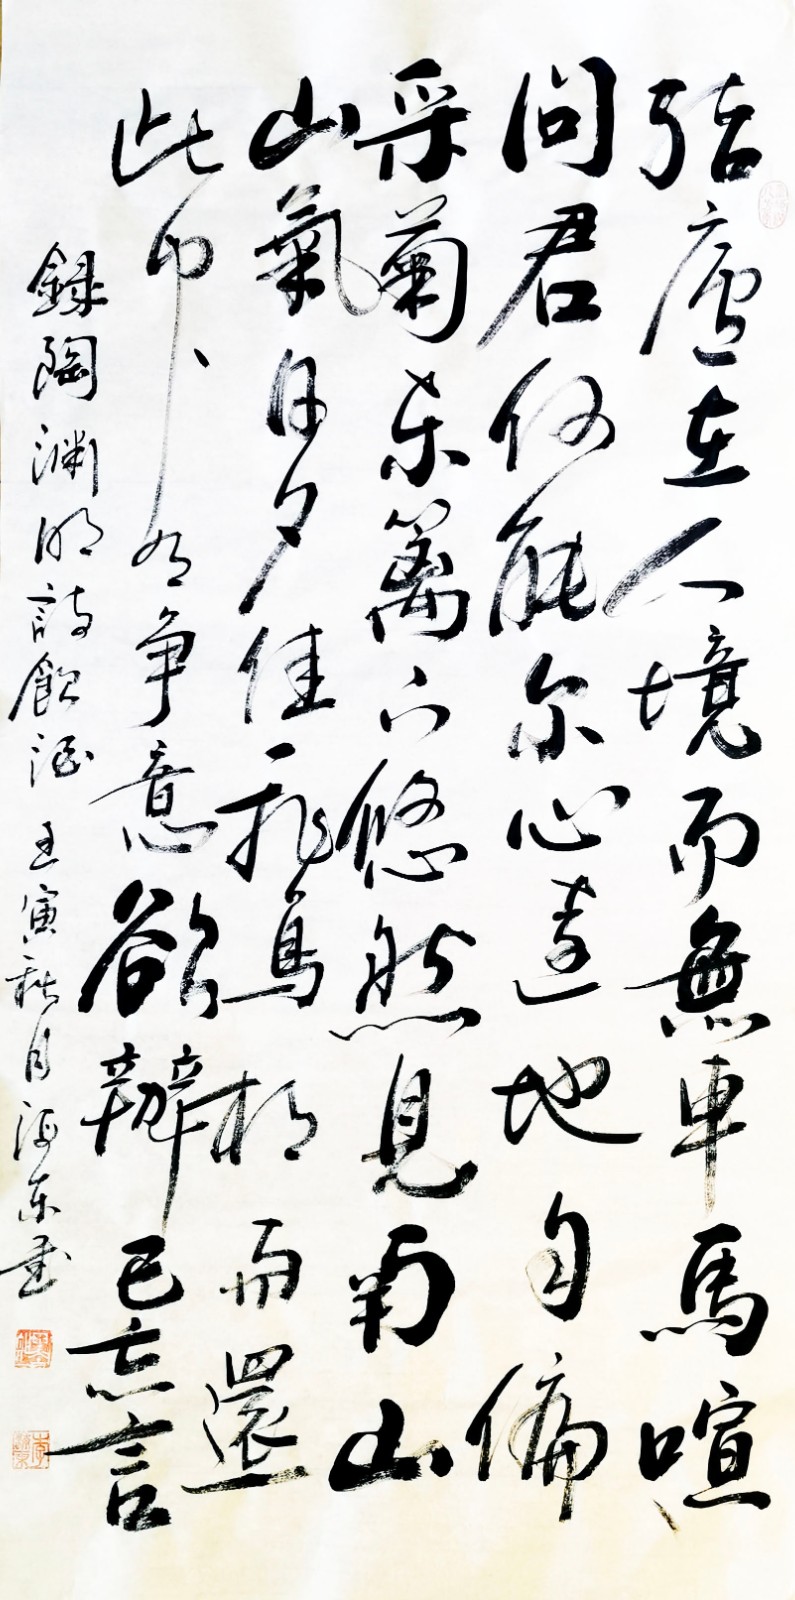 结廬在人境而無車馬喧
问君何能尔心遠地自偏
采菊东篱下悠然見南山
山氣日夕佳飛鳥相與還
此中有真意欲辨已忘言
録陶渊明詩飲酒 壬寅秋月海东書